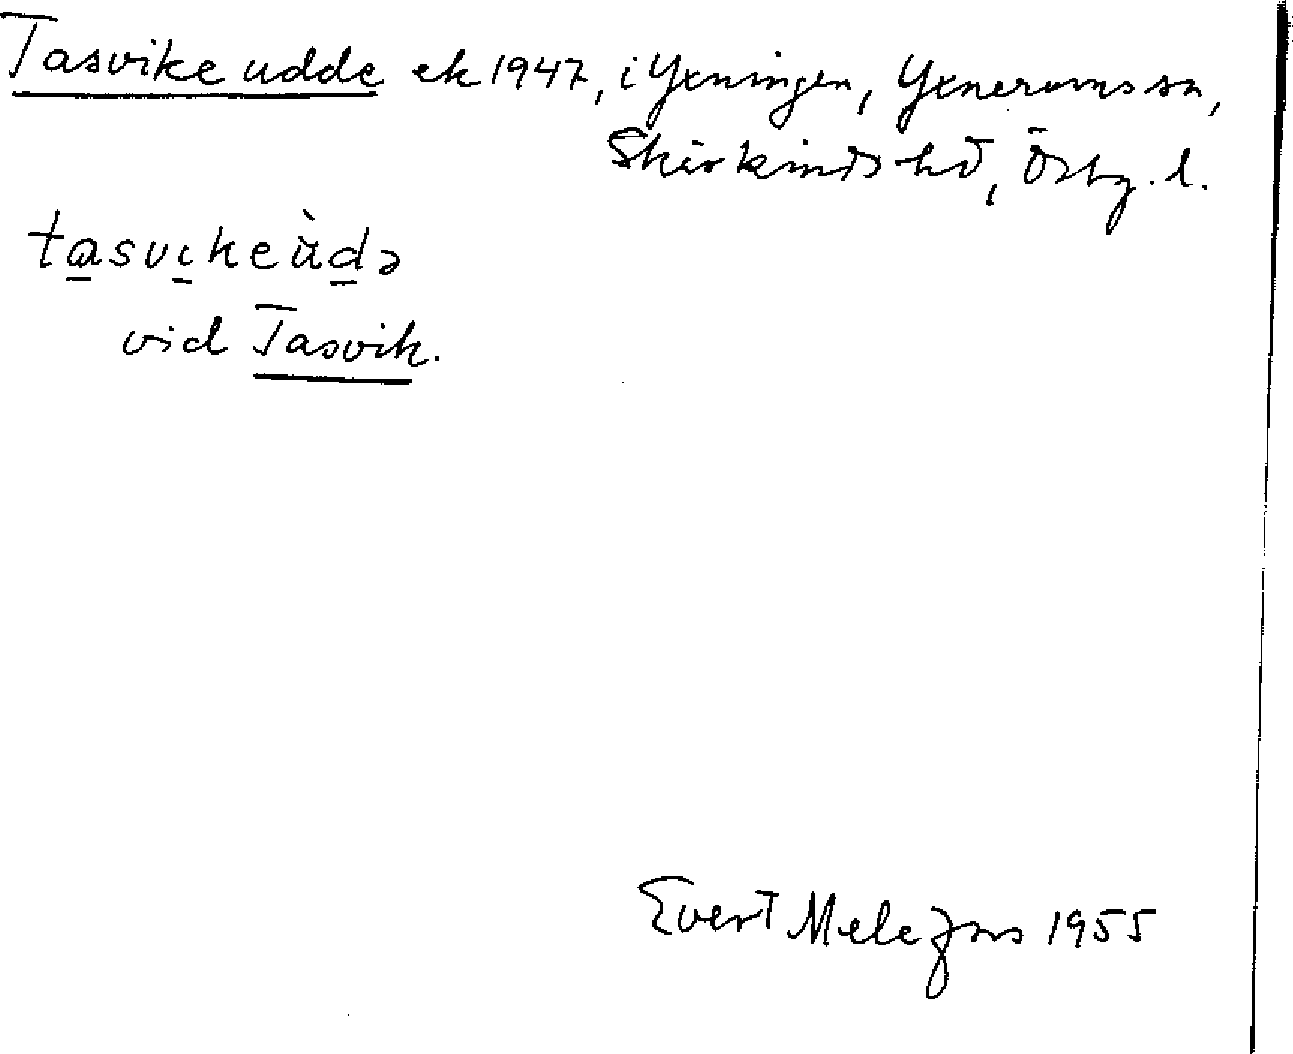 Tasvike udde ek 1947, i Yxningen, Yxnerums sn,
Skärkinds hd, Östg. l.
ta̲svi̲keùd̲ə
vid Tasvik.
Evert Melefors 1955